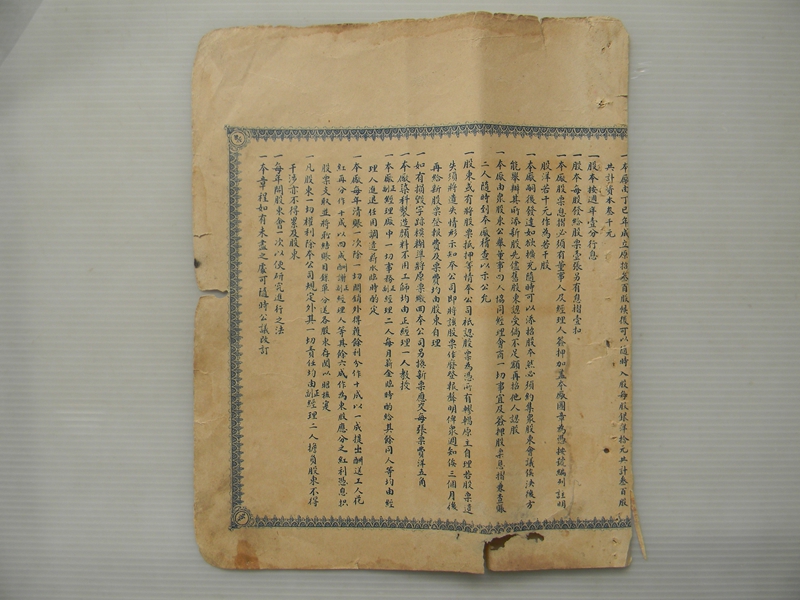 一本廠由丁巳年成立原招叁百股候後可以隨時入股每股銀洋拾元共計叁百股
共計資本叁千元
一股本按週年壹分行息
一股本每股發給股票壹張另有息摺壹扣
一本廠股票息摺必須有董事人及經理人簽押加蓋本廠圖章為憑按號編列註明
股洋若干元作為若干股
一本廠嗣後發達如欲擴充隨時可以添招股本然必須約集衆股東會議俟法後方
能舉辦其所添新股先儘舊股東認受倘不足額再招他人認股
一本廠由衆股東公舉董事 人協同經理會商一切事宜及簽押股票息摺東查賬
二人隨時到本廠稽查以示公允
一股東或有將股票抵押等情本公司祇認股票為憑所有轇轕原主自理若股票遺
失須將遺失情形示知本公司即將該股票作廢登報聲明俾衆週知俟三個月後
再給新股票登報費及票費均由股東自理
一如有損毀字跡模糊準將原票繳回本公司另換新票應交每張票費洋五角
一本廠染料製造顏料不用工師均由正經理一人教授
一本廠正副經理廠中一切事務 副經理二人每月薪金臨時酌給其餘同人等均由經
理人進退任用調造薪水臨時酌定
一本廠每年清賬一次除一切開銷外得獲餘利分作十成以一成提出酬送工人花
紅再分作十成以四成酬謝正副經理人等其餘六成作為東股應分之紅利憑息摺
股票支取並將所結賬目錄單分送各股東存閱以昭核實
一凡股東一切權利除本公司規定外其一切責任均由正副經理二人擔負股東不得
干涉亦不得累及股東
一每年開股東會一次以便研究進行之法
一本章程如有未盡之處可隨時公議改訂